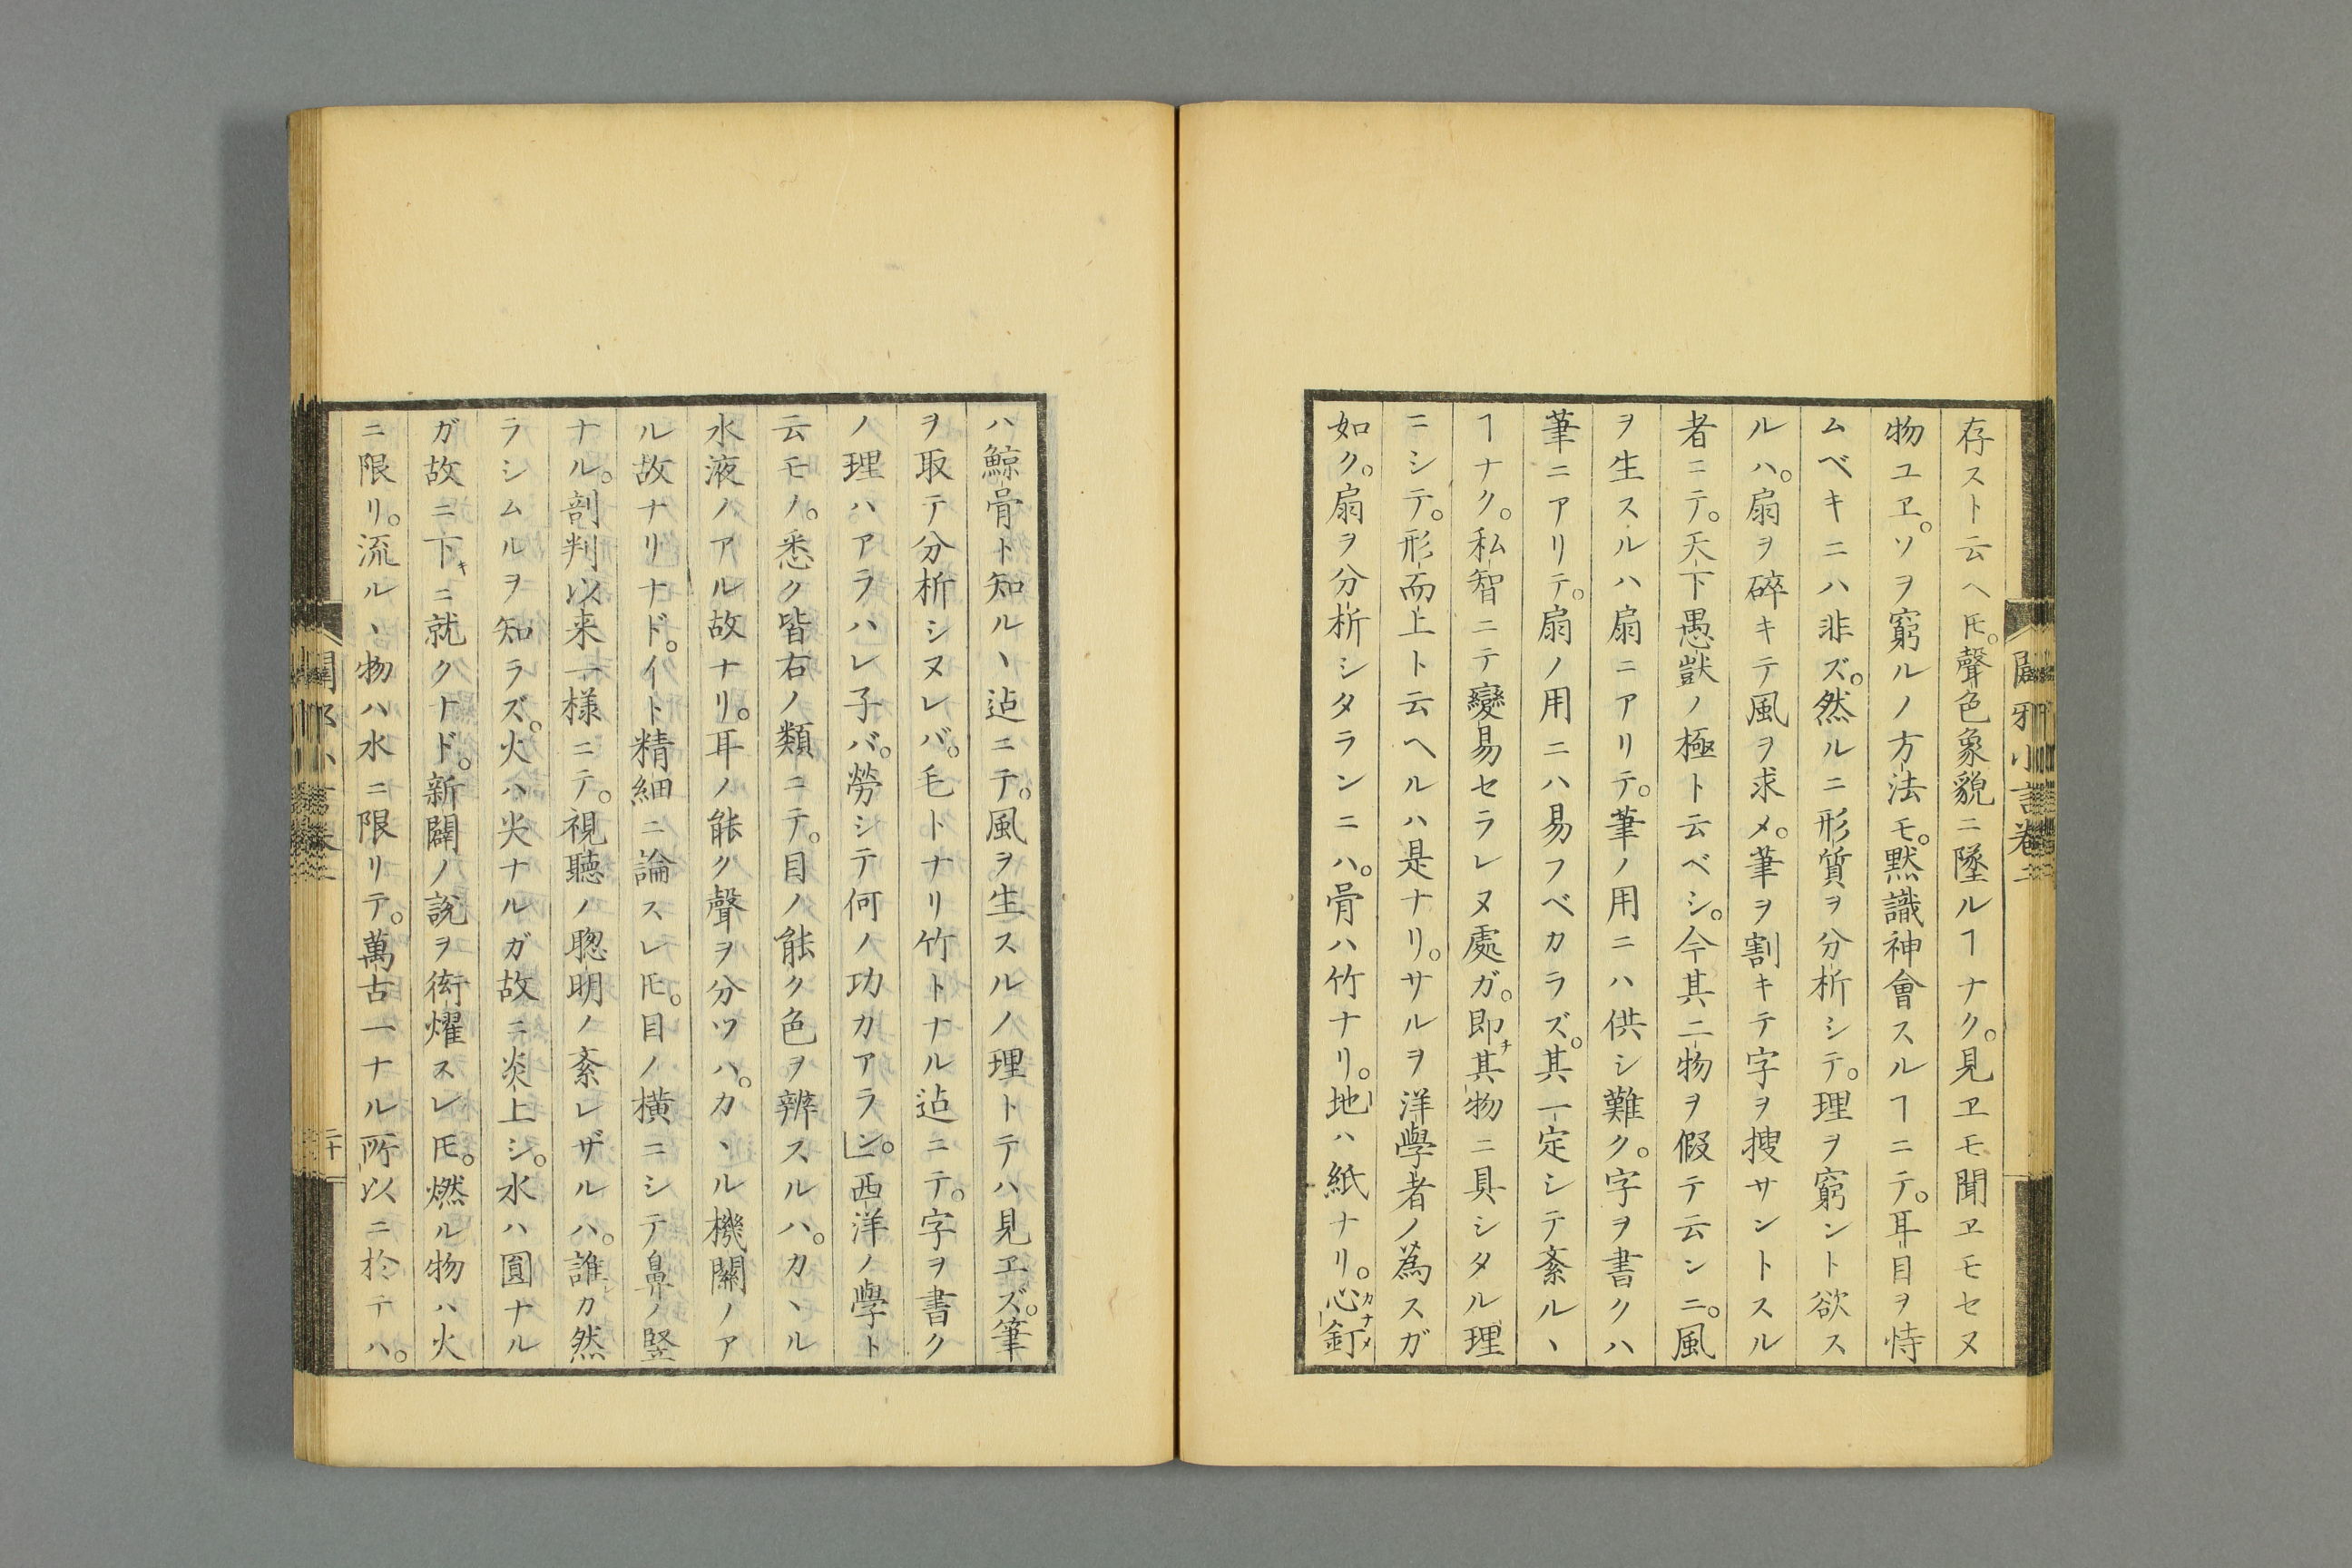 存スト云ヘ𪜈。聲色象貌ニ墜ルヿナク。見ヱモ聞ヱモセヌ
物ユヱ。ソヲ窮ルノ方法モ。黙識神會スルヿニテ。耳目ヲ恃
ムベキニハ非ズ。然ルニ形質ヲ分析シテ。理ヲ窮ント欲ス
ルハ。扇ヲ碎キテ風ヲ求メ。筆ヲ割キテ字ヲ搜サントスル
者ニテ。天下愚獃ノ極ト云ベシ。今其二物ヲ假テ云ンニ。風
ヲ生スルハ扇ニアリテ。筆ノ用ニハ供シ難ク。字ヲ書クハ
筆ニアリテ。扇ノ用ニハ易フベカラズ。其一定シテ紊ルヽ
ヿナク。私智ニテ變易セラレヌ處ガ。即チ其物ニ具シタル理
ニシテ。形而上ト云ヘルハ是ナリ。サルヲ洋學者ノ為スガ
如ク。扇ヲ分析シタランニハ。骨ハ竹ナリ。地ハ紙ナリ。心釘カナメ
ハ鯨骨ト知ルヽ迠ニテ。風ヲ生スルノ理トテハ見ヱズ。筆
ヲ取テ分析シヌレバ。毛トナリ竹トナル迠ニテ。字ヲ書ク
ノ理ハアラハレ子バ。勞シテ何ノ功カアラン。」西洋ノ學ト
云モノ。悉ク皆右ノ類ニテ。目ノ能ク色ヲ辨スルハ。カヽル
水液ノアル故ナリ。耳ノ能ク聲ヲ分ツハ。カヽル機關ノア
ル故ナリナド。イト精細ニ論スレ𪜈。目ノ横ニシテ鼻ノ竪
ナル。剖判以来一様ニテ。視聽ノ聰明ノ紊レザルハ。誰カ然
ラシムルヲ知ラズ。火ハ尖ナルガ故ニ炎上シ。水ハ圓ナル
ガ故ニ下キニ就クナド。新闢ノ說ヲ衒燿スレ𪜈。燃ル物ハ火
ニ限リ。流ルヽ物ハ水ニ限リテ。萬古一ナル所以ニ於テハ。
闢邪小言卷二
二十